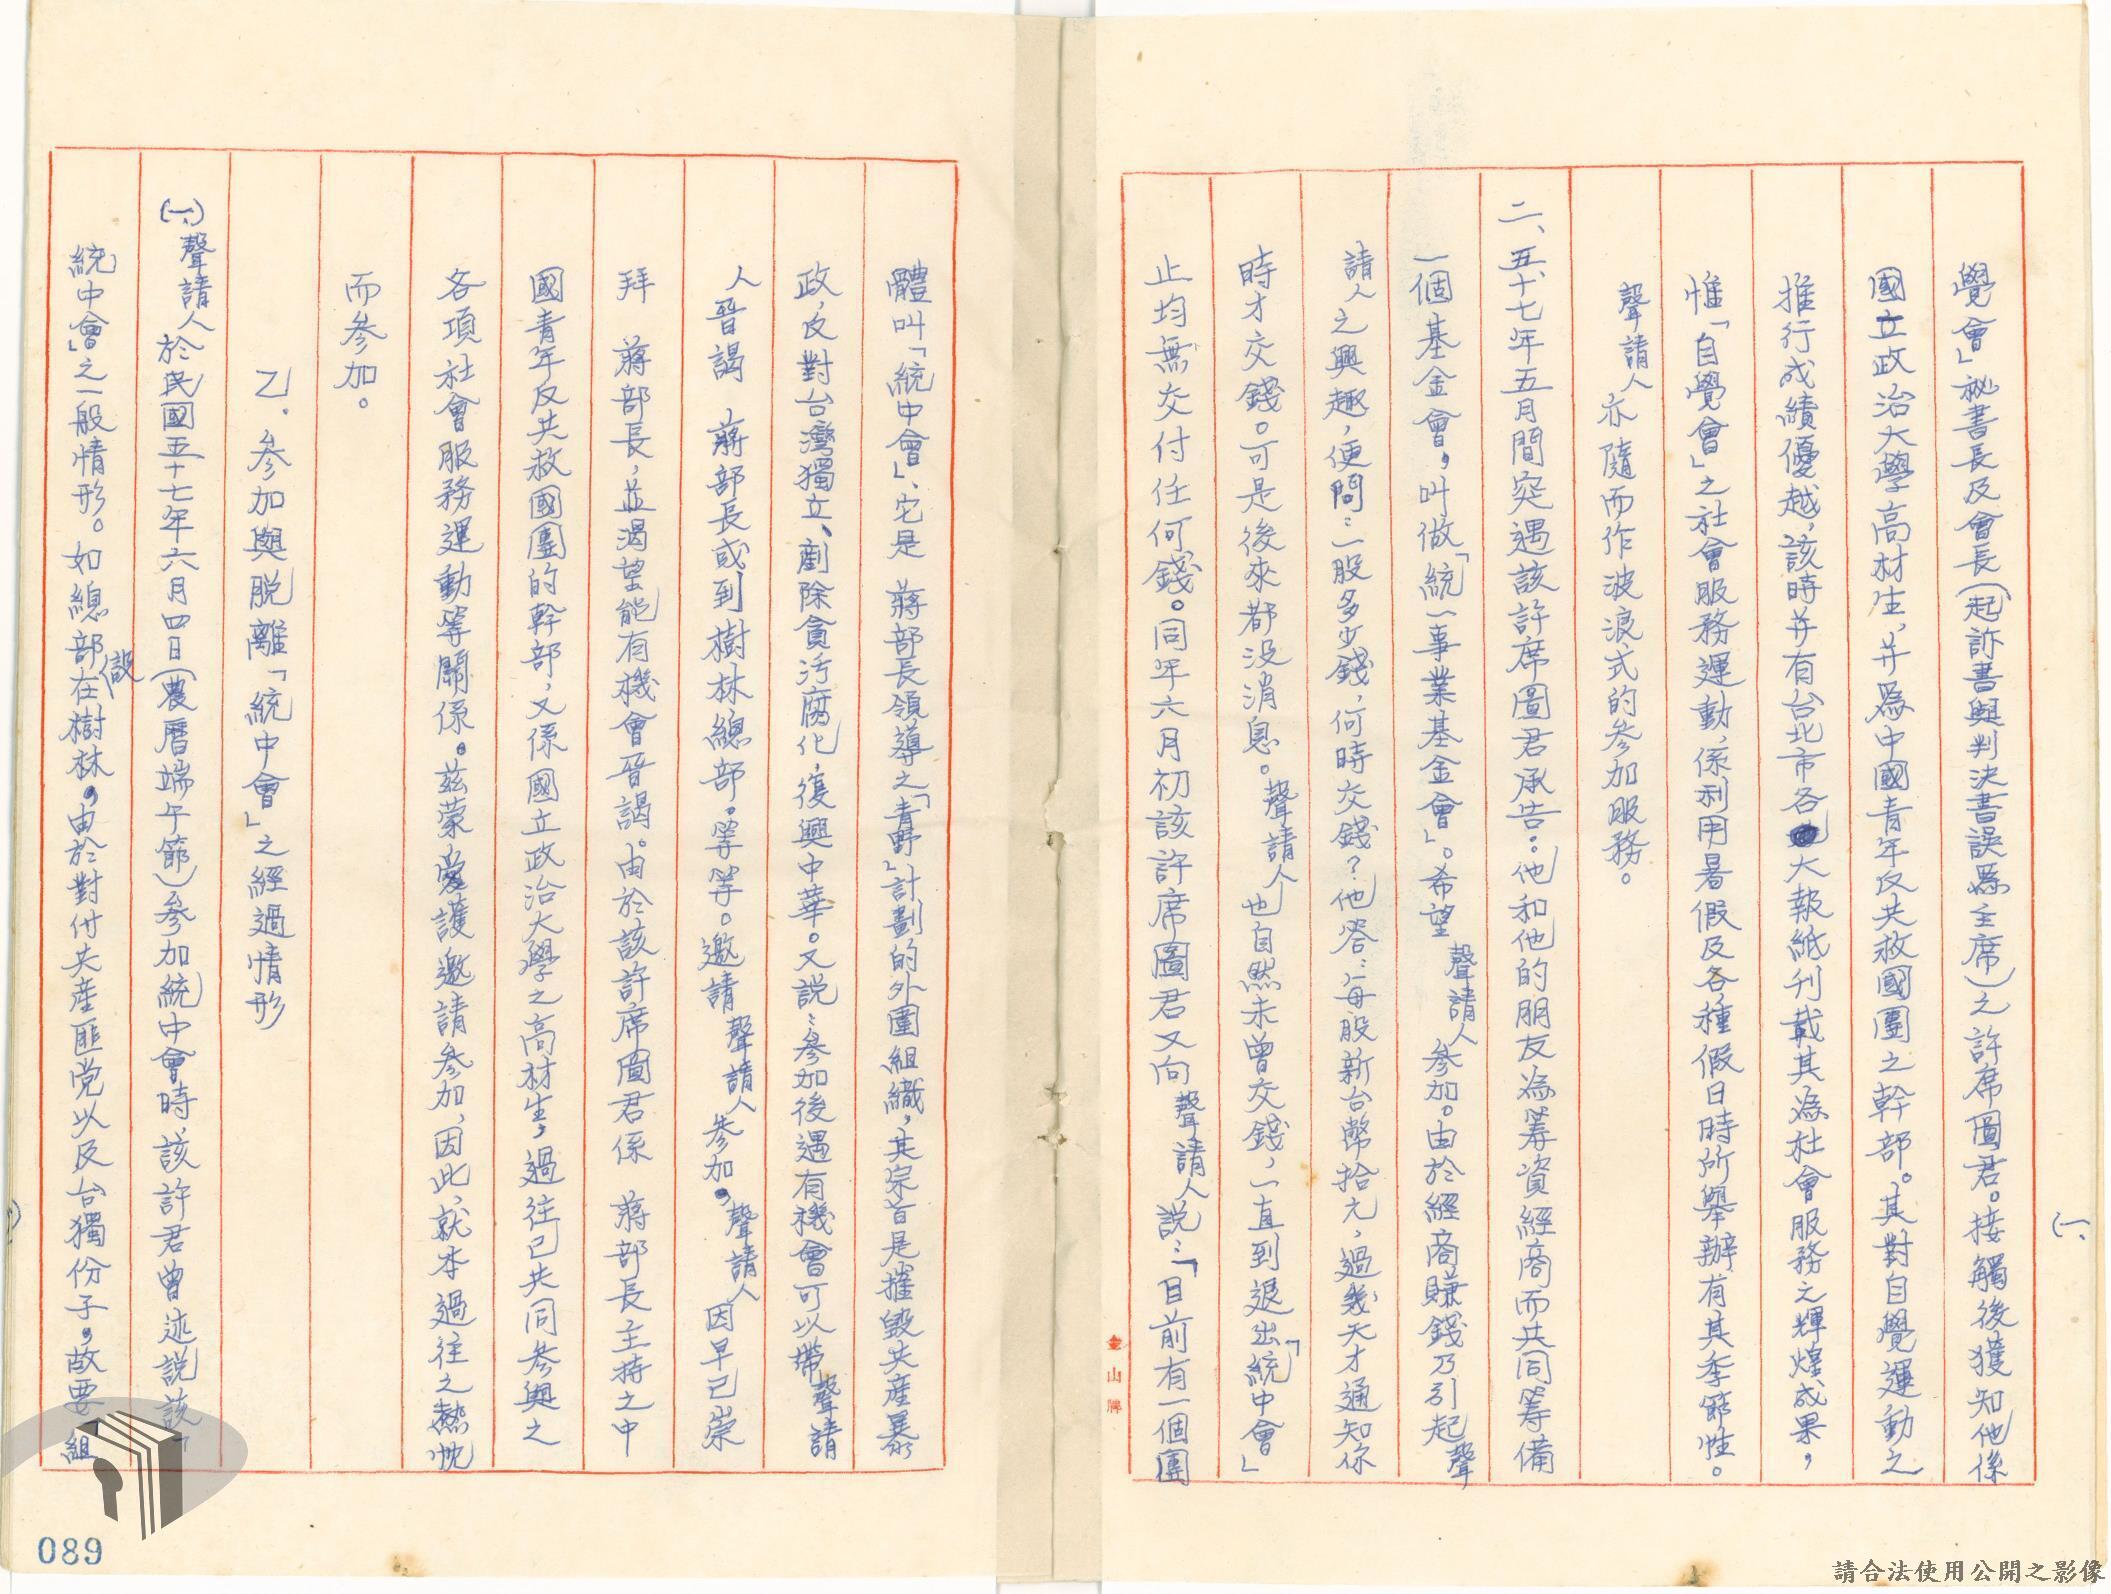 (一、
覺會」祕書長及會長(起訴書與判決書誤為主席)之許席圖君。接觸後獲知他係
國立政治大學高材生,并為中國青年反共救國團之幹部。其對自覺運動之
推行成績優越,該時并有台北市各大報紙刊載其為社會服務之輝煌成果,
惟「自覺會」之社會服務運動,係利用暑假及各種假日時所舉辦有其季節性。
聲請人亦隨而作波浪式的參加服務。
二、五十七年五月間突遇該許席圖君承告:他和他的朋友為籌資經商而共同籌備
一個基金會,叫做「統一事業基金會」。希望聲請人參加。由於經商賺錢乃引起聲
請人之興趣,便問:一股多少錢,何時交錢?他答:每股新台幣拾元,過幾天才通知你
時才交錢。可是後來都没消息。聲請人也自然未曾交錢,一直到退出「統中會」
止均無交付任何錢。同年六月初該許席圖君又向聲請人説:「目前有一個團
金山牌
體叫「統中會」、它是 蔣部長領導之「青野」計劃的外圍組織,其宗旨是摧毀共產暴
政,反對台灣獨立、剷除貪污腐化,復興中華。又説:參加後遇有機會可以帶聲請
人晉謁 蔣部長或到樹林總部。等等。邀請聲請人參加。聲請人因早已崇
拜 蔣部長,並渴望能有機會晉謁。由於該許席圖君係 蔣部長主持之中
國青年反共救國團的幹部,又係國立政治大學之高材生,過往已共同參與之
各項社會服務運動等關係。茲蒙愛護邀請參加,因此,就本過往之熱忱
而參加。
乙.參加與脱離「統中會」之經過情形
(一)聲請人於民國五十七年六月四日(農曆端午節)參加統中會時,該許君曾述説該「
統中會」之一般情形。如總部設在樹林。由於對付共產匪党以及台獨份子。故要「組
089
請合法使用公開之影像